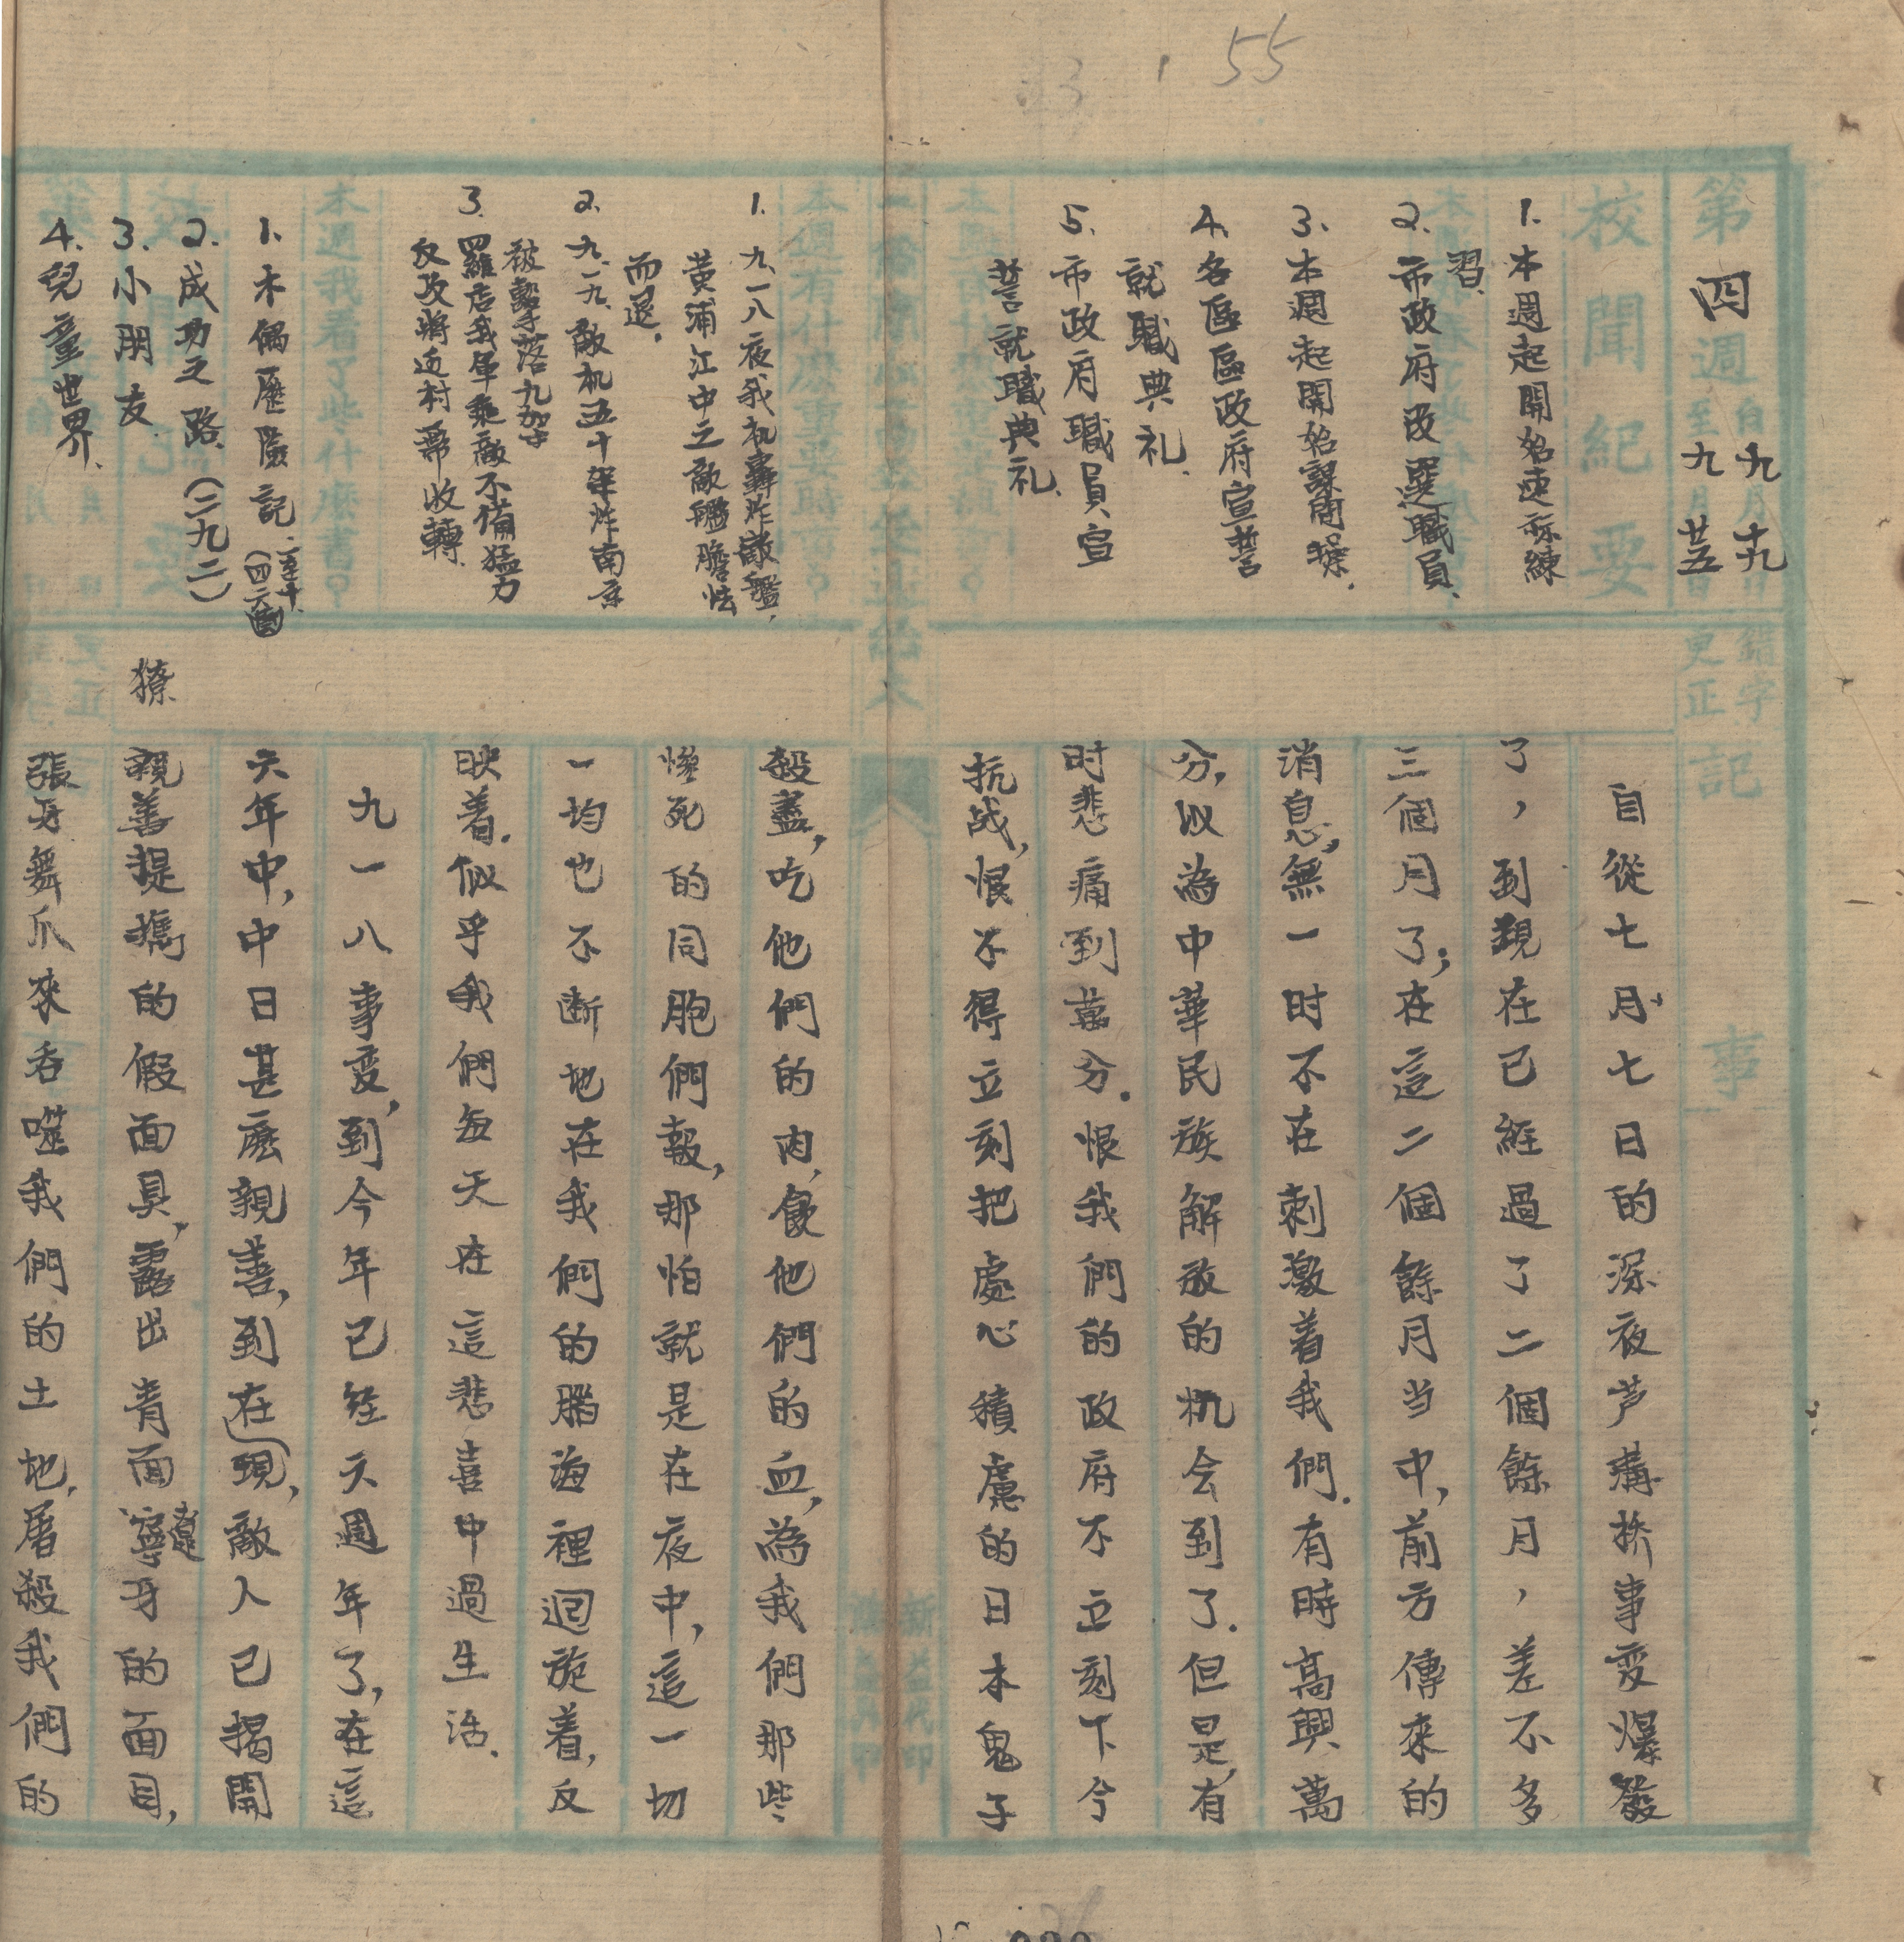 55
第四週
自九月十九日
至九月廿五日
校聞紀要
1.本週起開始速你練
習.
2.市政府改選職員.
3.本週起開始課間操.
4.各區區政府宣誓
就職典礼.
5.市政府職員宣
誓就職典礼.
本週有什麼事要聞?
1.九.一八夜我机轟炸敵艦,
黃浦江中之敵艦膽怯
而退.
2.九.一九.敵机五十架炸南京
被擊落九架
3.羅店我軍乘敵不備猛力
反攻將近村帶收轉.
本週我看了些什麼書?
1.木偶歷險記.(四六回至十)
2.成功之路.(二九二)
3.小朋友
4.兒童世界.
錯字
更正
獠
記事
自從七月七日的深夜芦溝桥事变爆發
了,到現在已經過了二個餘月,差不多
三個月了;在這二個餘月当中,前方傳來的
消息,無一时不在刺激着我們.有時高興萬
分,以為中華民族解放的机会到了.但是,有
时悲痛到萬分.恨我們的政府不立刻下令
抗战,恨不得立刻把處心積慮的日本鬼子
殺盡,吃他們的肉,飲他們的血,為我們那些
慘死的同胞們報,那怕就是在夜中,這一切
一均也不断地在我們的腦海裡迴旋着,反
映着.似乎我們每天在這悲喜中過生活.
九一八事变,到今年已经六週年了,在這
六年中,中日甚麽親善,到在現,敵人已揭開
親善提攜的假面具,露出青面獠牙的面目,
張牙舞爪來吞噬我們的土地,屠殺我們的